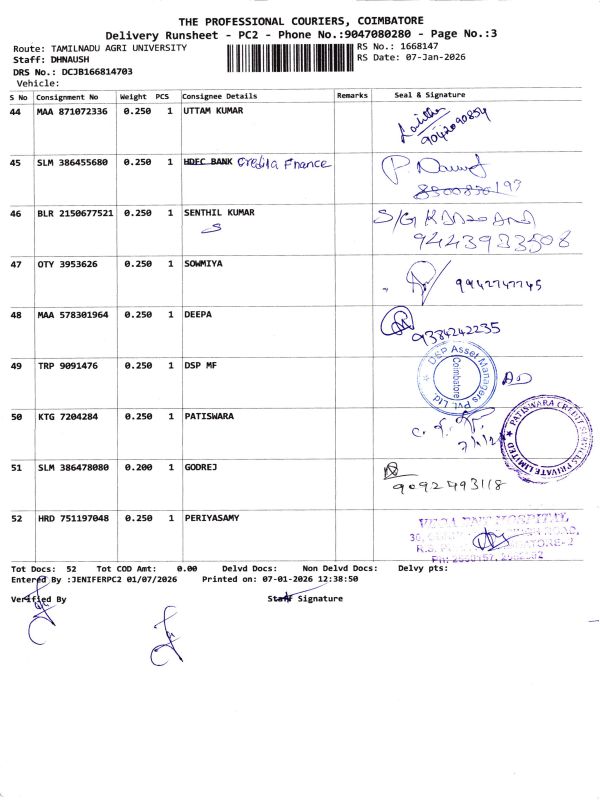 THE PROFESSIONAL COURIERS, COIMBATORE
Delivery Runsheet - PC2 - Phone No.:9047080280 - Page No.:3
Route: TAMILNADU AGRI UNIVERSITY
RS No.: 1668147
Staff: DHNAUSH
RS Date: 07-Jan-2026
DRS No.: DCJB166814703
Vehicle:
S No Consignment No Weight PCS Consignee Details Remarks Seal & Signature
44 MAA 871072336 0.250 1 UTTAM KUMAR
9042090854
45 SLM 386455680 0.250 1 HDFC BANK Credila Finance
46 BLR 2150677521 0.250 1 SENTHIL KUMAR
9443933508
47 OTY 3953626 0.250 1 SOWMIYA
9942747745
48 MAA 578301964 0.250 1 DEEPA
9384242235
49 TRP 9091476 0.250 1 DSP MF
DSP Asset Managers Pvt. Ltd
Coimbatore
50 KTG 7204284 0.250 1 PATISWARA
PATISWARA CREDIT SERVICES PRIVATE LIMITED
51 SLM 386478080 0.200 1 GODREJ
9092493118
52 HRD 751197048 0.250 1 PERIYASAMY
HOSPITAL
Tot Docs: 52 Tot COD Amt: 0.00 Delvd Docs: Non Delvd Docs: Delvy pts:
Entered By :JENIFERPC2 01/07/2026 Printed on: 07-01-2026 12:38:50
Verified By Staff Signature